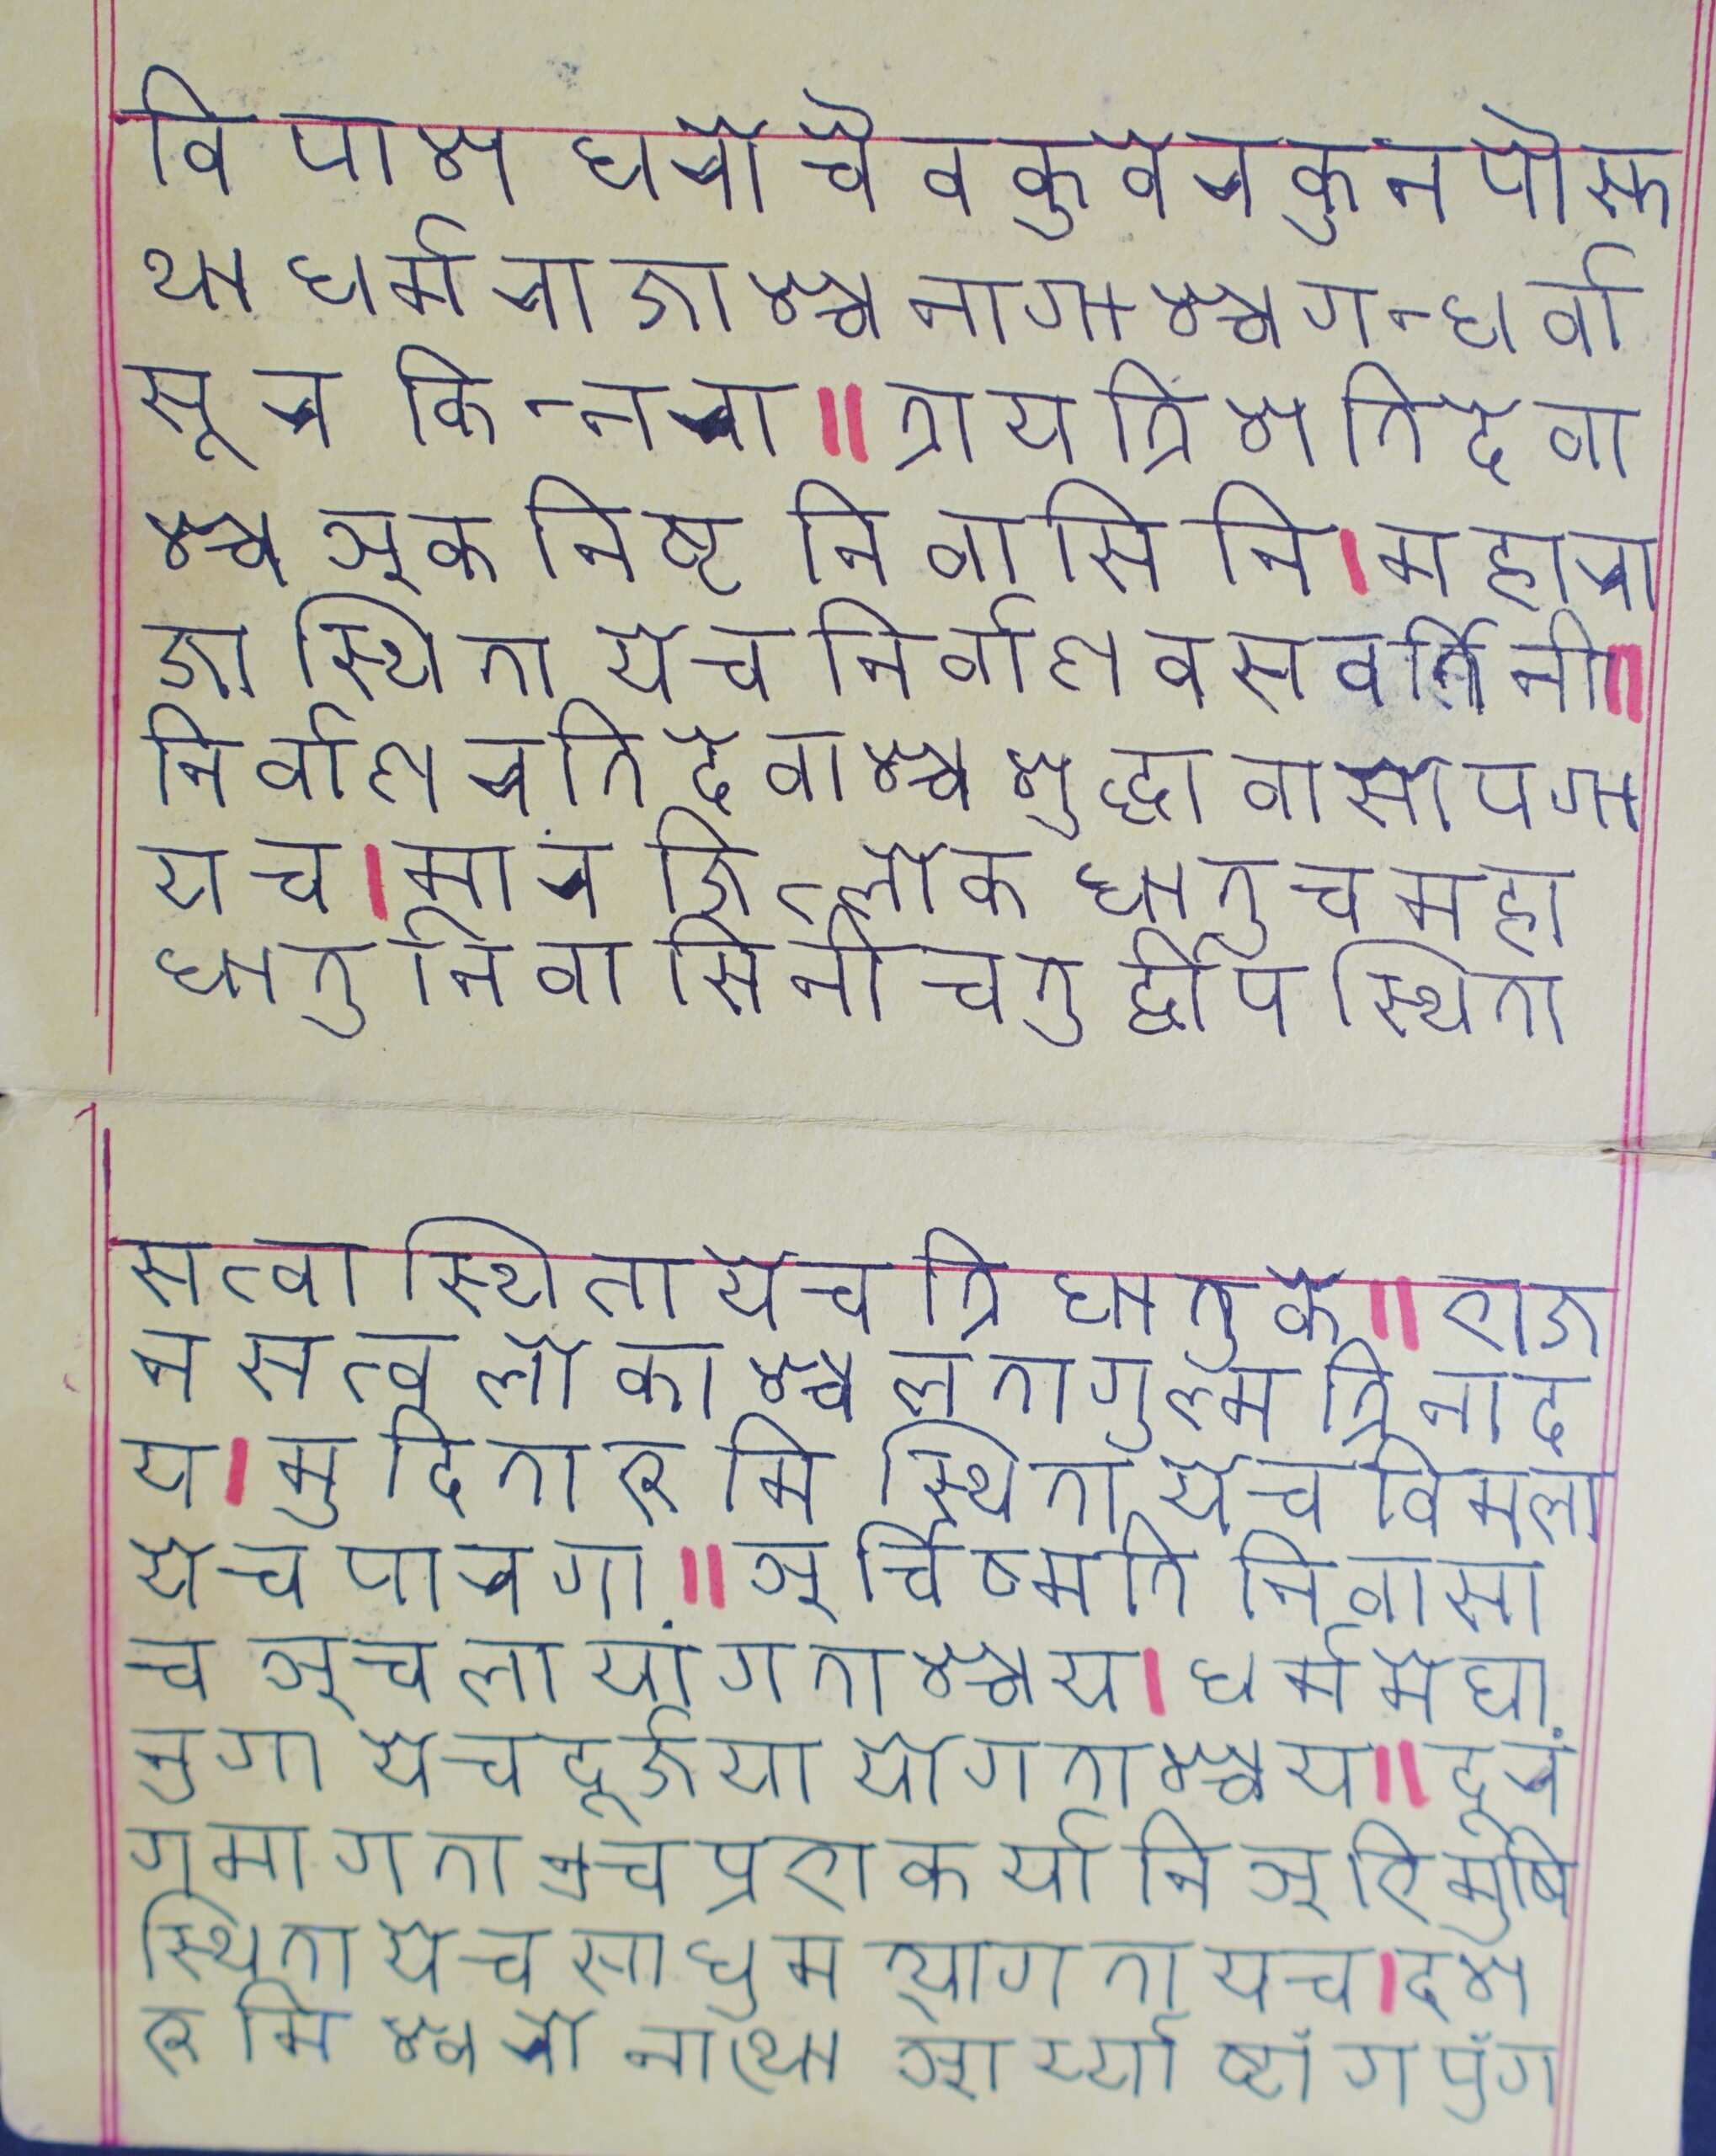 विपाश धरोचैव कुवेर कुनपोस्त
था धर्मराजाश्च नागाश्च गन्धर्वा
सूर किन्नरा॥त्रायत्रिशतिदेवा
श्च अकनिष्ट निवासिनि।महारा
जा स्थिता येच निर्वाण वसवर्तिनी॥
निर्वाण रतिदेवाश्च शुद्धावासोपगा
यच।मारं जित्लोक धातुच महा
धातु निवासिनी चतुर्द्वीप स्थिता
सत्वा स्थिता येच त्रिधातुके॥भाज
न सत्वलोकाश्च लतागुल्म त्रिनाद
य।मुदिताभूमि स्थिता येच विमला
येच पारगा॥अर्चिष्मति निवासा
च अचलायां गताश्चय।धर्ममेघा
नुगा येच दूर्जया योगताश्चय॥दूरं
गमागताश्च प्रभाकर्यानि अभिमुषि
स्थिता येच साधुमत्यागता यच।दश
भूमिश्वरो नाथा आर्य्याष्टांगपुंग